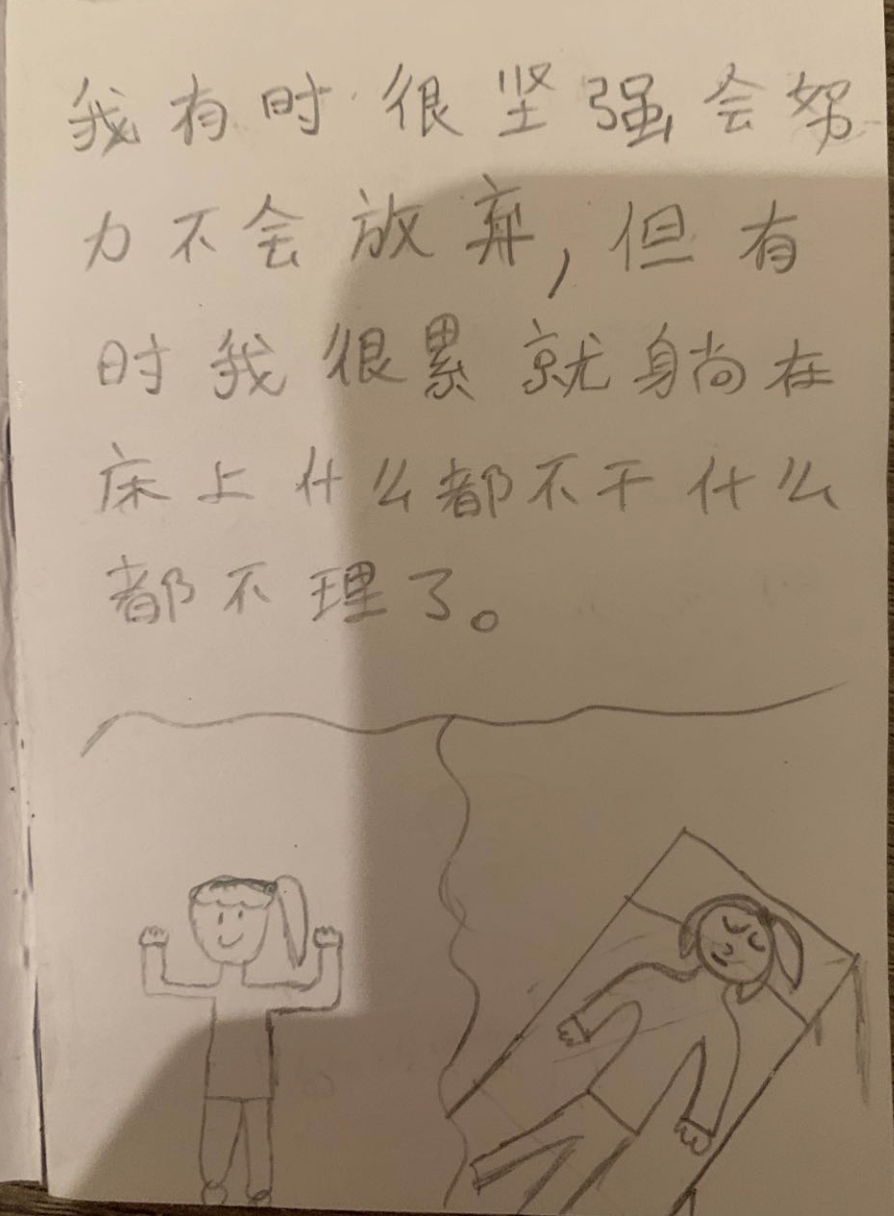 我有时很坚强会努
力不会放弃,但有
时我很累就躺在
床上什么都不干什么
都不理了。